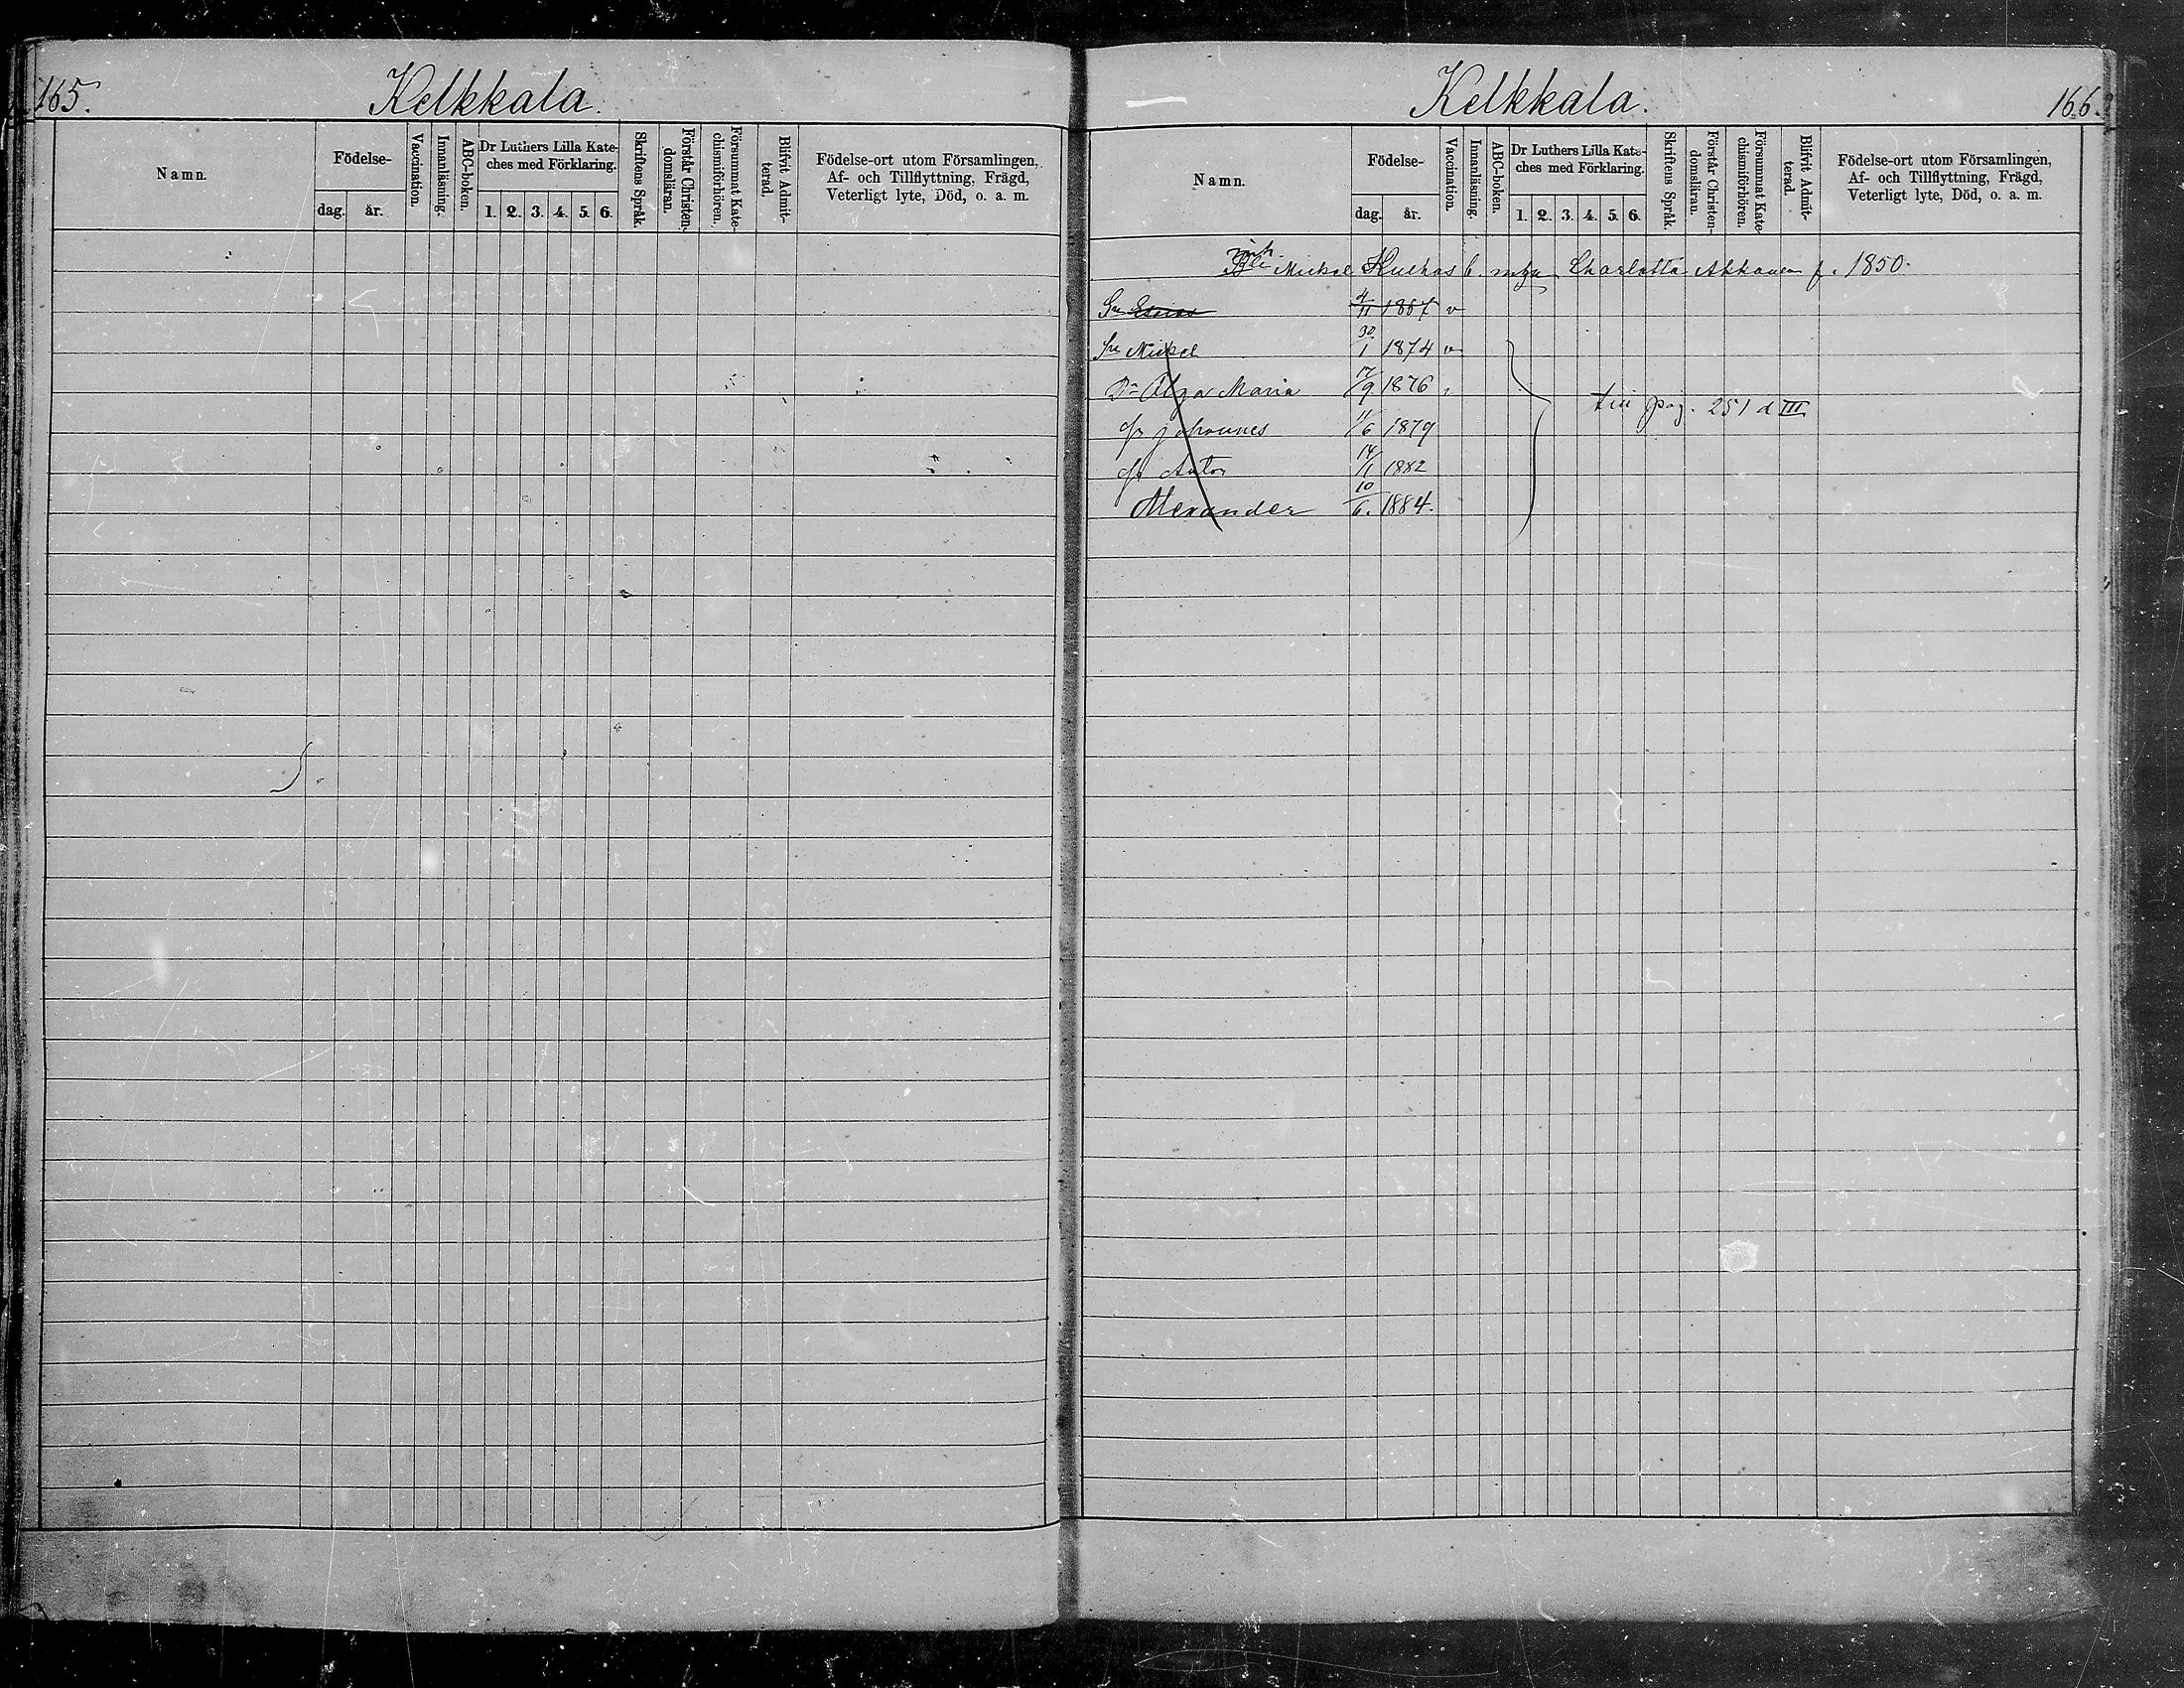 165.
Kelkkala.
Namn.
Födelse-
dag. år.
Vaccination.
Innanläsning.
ABC-boken.
Dr Luthers Lilla Kate-
ches med Förklaring.
1. 2. 3. 4. 5. 6.
Skriftens Språk.
Förstår Christen-
domsläran.
Försummat Kate-
chismiförhören.
Blifvit Admit-
terad.
Födelse-ort utom Församlingen,
Af- och Tillflyttning, Frägd,
Veterligt lyte, Död, o. a. m.
Kelkkala.
166.
Namn.
Födelse-
dag. år.
Vaccination.
Innanläsning.
ABC-boken.
Dr Luthers Lilla Kate-
ches med Förklaring.
1. 2. 3. 4. 5. 6.
Skriftens Språk.
Förstår Christen-
domsläran.
Försummat Kate-
chismiförhören.
Blifvit Admit-
terad.
Födelse-ort utom Församlingen,
Af- och Tillflyttning, Frägd,
Veterligt lyte, Död, o. a. m.
Mickel Charlotta f. 1850.
Sn 4/11 1867 v
Sn Mickel 30/1 1874 v
Dr Olga Maria 17/9 1876
Sn Johannes 11/6 1879
Sn Anton 14/1 1882
Alexander 10/6. 1884.
till pag. 251 d III